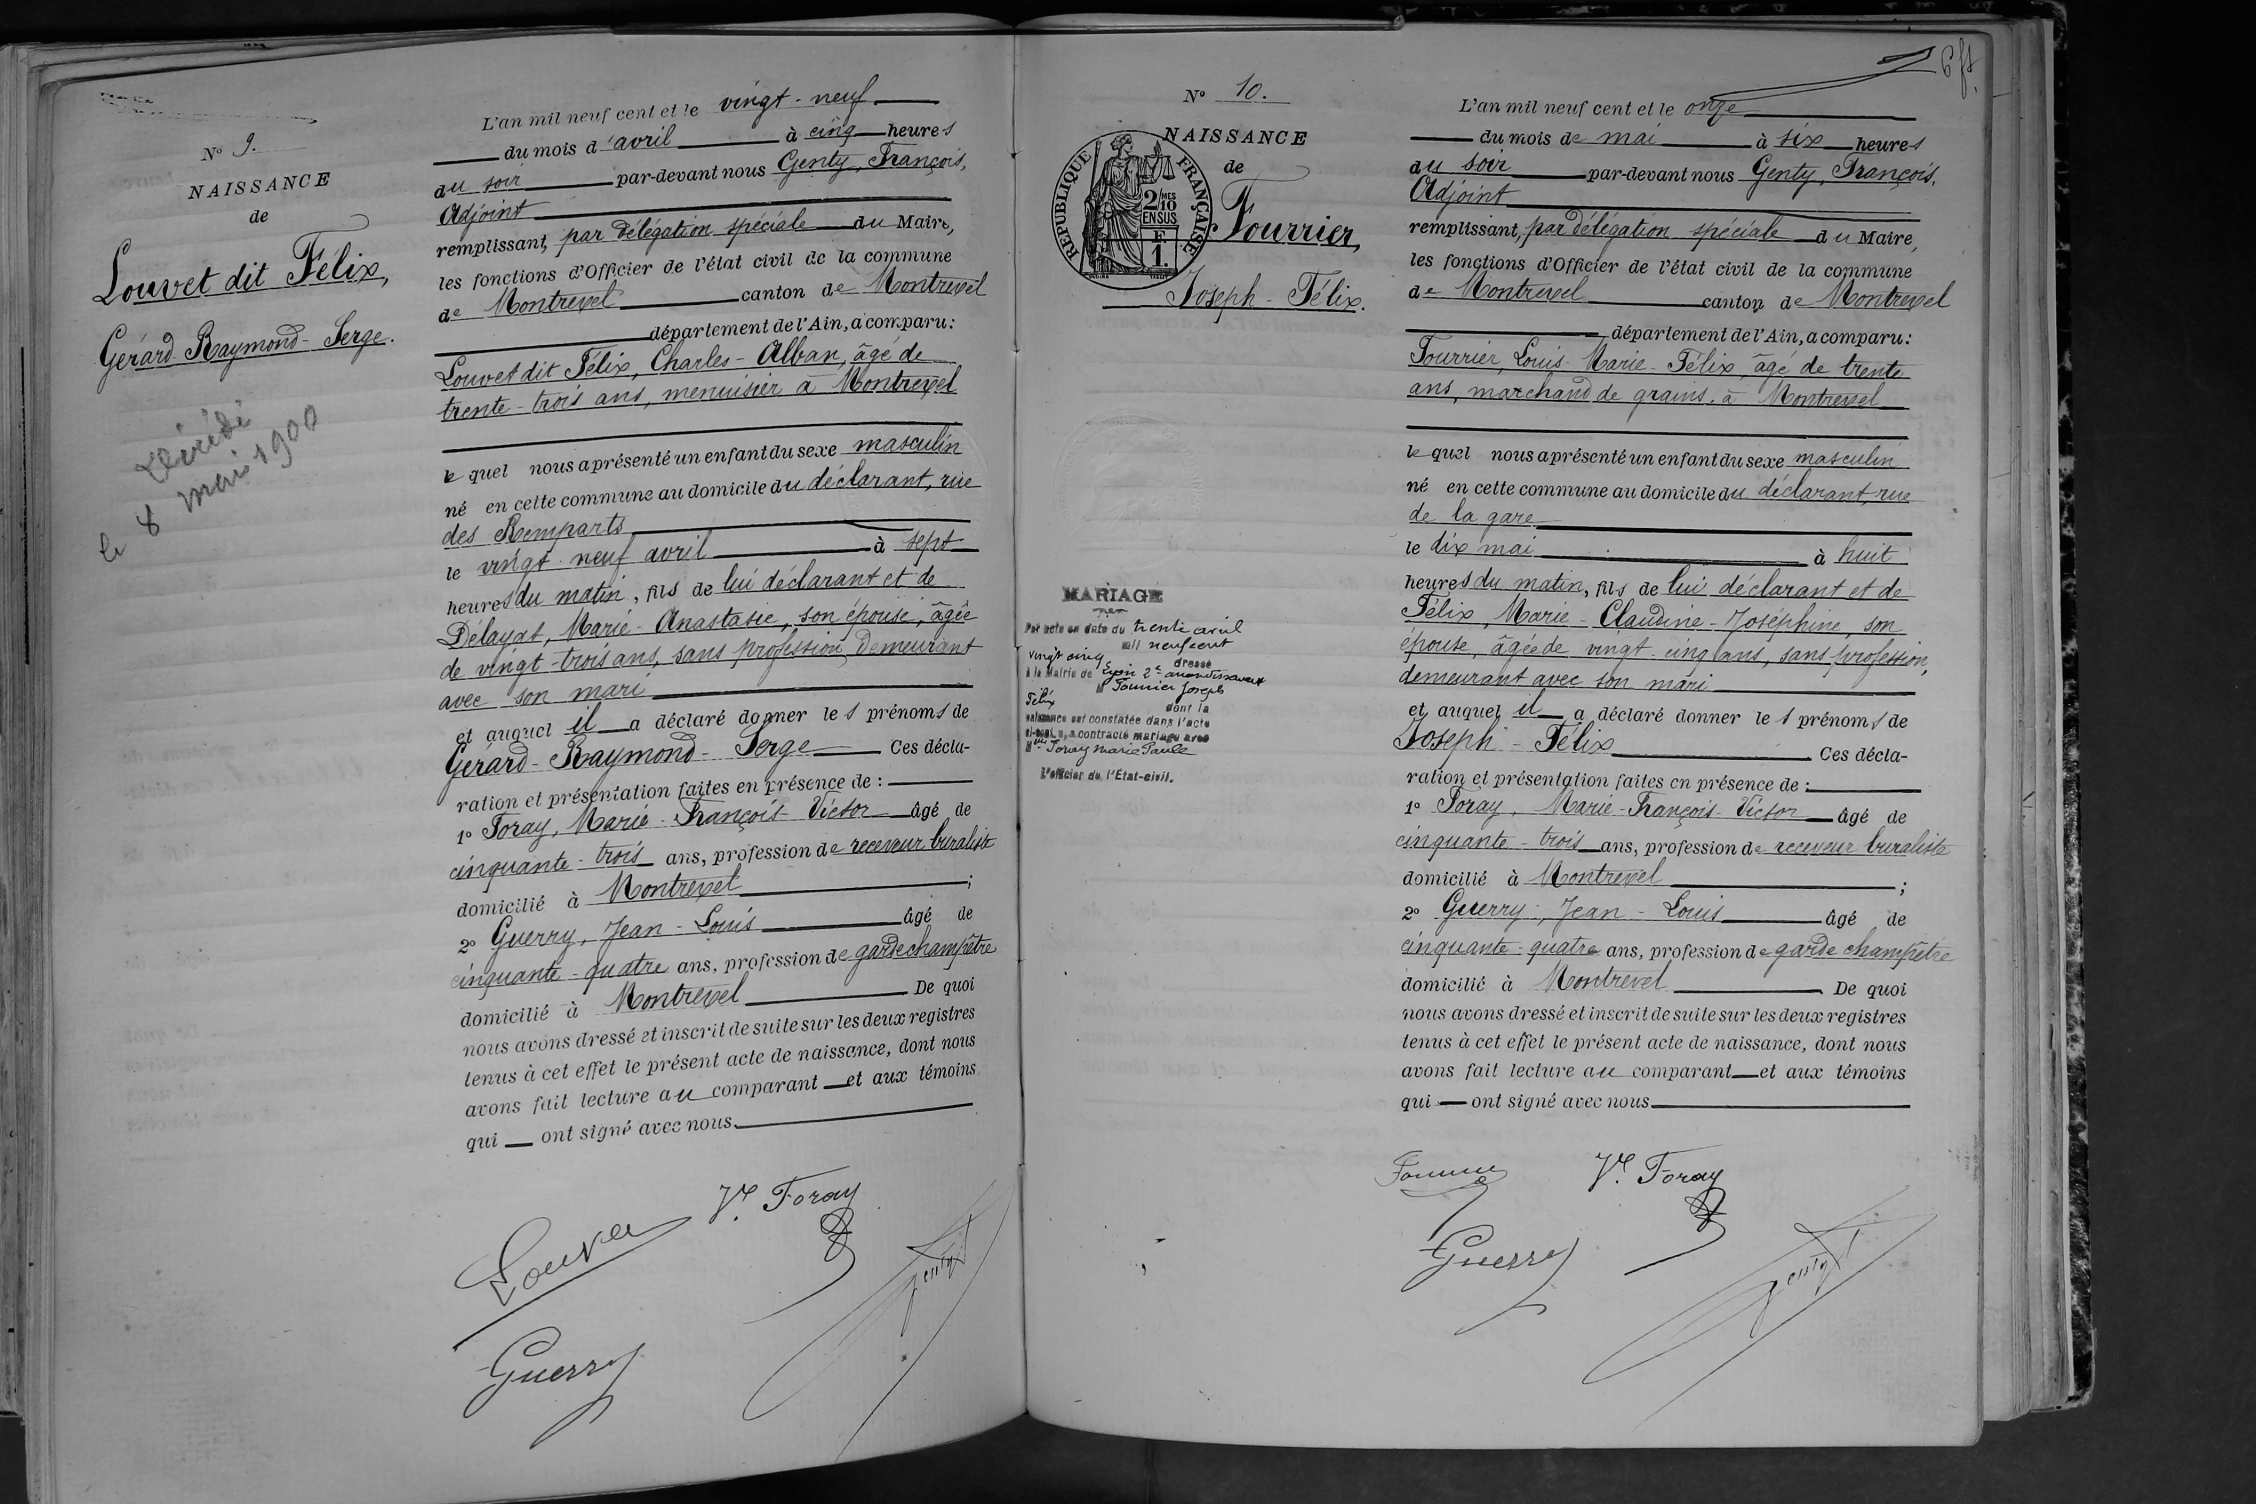 N° 9.
NAISSANCE
de
Louvet dit Félix,
Gérard-Raymond-Serge.
Décédé
le 8 mai 1900
L'an mil neuf cent et le vingt-neuf
du mois d'avril à cinq heures
du soir par-devant nous Genty, François,
Adjoint
remplissant, par délégation spéciale du Maire,
les fonctions d'Officier de l'état civil de la commune
de Montrevel canton de Montrevel
département de l'Ain, a comparu:
Louvet dit Félix, Charles-Alban, âgé de
trente-trois ans, menuisier à Montrevel
le quel nous a présenté un enfant du sexe masculin
né en cette commune au domicile du déclarant, rue
des Remparts
le vingt-neuf avril à sept
heures du matin, fils de lui déclarant et de
Délayat, Marie-Anastasie, son épouse, âgée
de vingt-trois ans, sans profession, demeurant
avec son mari
et auquel il a déclaré donner les prénoms de
Gérard-Raymond-Serge Ces décla-
ration et présentation faites en présence de :
1° Foray, Marie-François-Victor âgé de
cinquante-trois ans, profession de receveur buraliste
domicilié à Montrevel ;
2° Guerry, Jean-Louis âgé de
cinquante-quatre ans, profession de garde champêtre
domicilié à Montrevel De quoi
nous avons dressé et inscrit de suite sur les deux registres
tenus à cet effet le présent acte de naissance, dont nous
avons fait lecture au comparant et aux témoins
qui ont signé avec nous.
Vr. Foray
Louvet
Genty
Guerry
6 ft
N° 10.
NAISSANCE
de
REPUBLIQUE FRANÇAISE
2/10MES
EN SUS
F.
1.
Fourrier,
Joseph-Félix.
MARIAGE
Par acte en date du trente avril
mil neuf cent
vingt cinq dressé
à la Mairie de Lyon 2e arrondissement
M Fourrier Joseph
Félix dont la
naissance est constatée dans l'acte
ci-contre, a contracté mariage avec
Mlle Foray Marie Paule
L'officier de l'État-civil.
L'an mil neuf cent et le onze
du mois de mai à six heures
du soir par-devant nous Genty, François,
Adjoint
remplissant, par délégation spéciale du Maire,
les fonctions d'Officier de l'état civil de la commune
de Montrevel canton de Montrevel
département de l'Ain, a comparu:
Fourrier, Louis-Marie-Félix, âgé de trente
ans, marchand de grains, à Montrevel
le quel nous a présenté un enfant du sexe masculin
né en cette commune au domicile du déclarant, rue
de la gare
le dix mai à huit
heures du matin, fils de lui déclarant et de
Félix, Marie-Claudine-Joséphine, son
épouse, âgée de vingt-cinq ans, sans profession,
demeurant avec son mari
et auquel il a déclaré donner les prénoms de
Joseph-Félix Ces décla-
ration et présentation faites en présence de :
1° Foray, Marie-François-Victor âgé de
cinquante-trois ans, profession de receveur buraliste
domicilié à Montrevel ;
2° Guerry, Jean-Louis âgé de
cinquante-quatre ans, profession de garde champêtre
domicilié à Montrevel De quoi
nous avons dressé et inscrit de suite sur les deux registres
tenus à cet effet le présent acte de naissance, dont nous
avons fait lecture au comparant et aux témoins
qui ont signé avec nous
Fourrier
Vr. Foray
Guerry
Genty